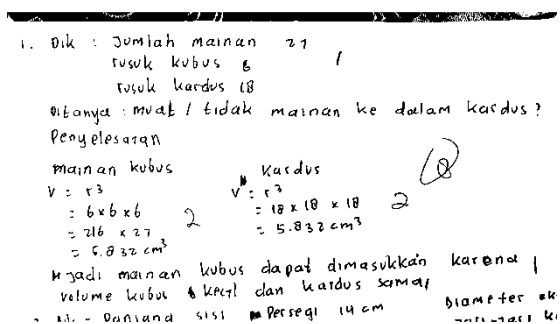 1. Dik : Jumlah mainan 27
rusuk kubus 6 1
rusuk kardus 18
Ditanya : muat / tidak mainan ke dalam kardus?
Penyelesaian
mainan kubus Kardus 8
V = r3 V = r3
= 6x6x6 = 18 x 18 x 18
= 216 x 27 2 = 5.832 cm3 2
= 5.832 cm3
Jadi mainan kubus dapat dimasukkan karena 1
volume kubus kecil dan kardus sama
Dik : Panjang sisi Persegi 14 cm Diameter
jari-jari